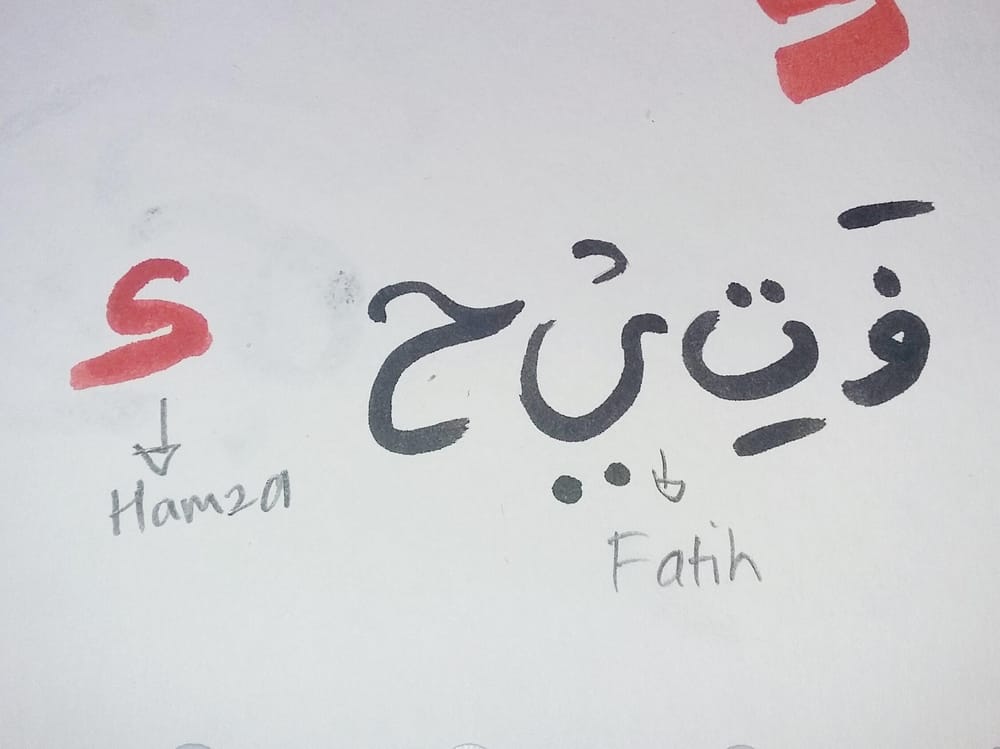 فَ تِ يْ ح ء
Hamza
Fatih